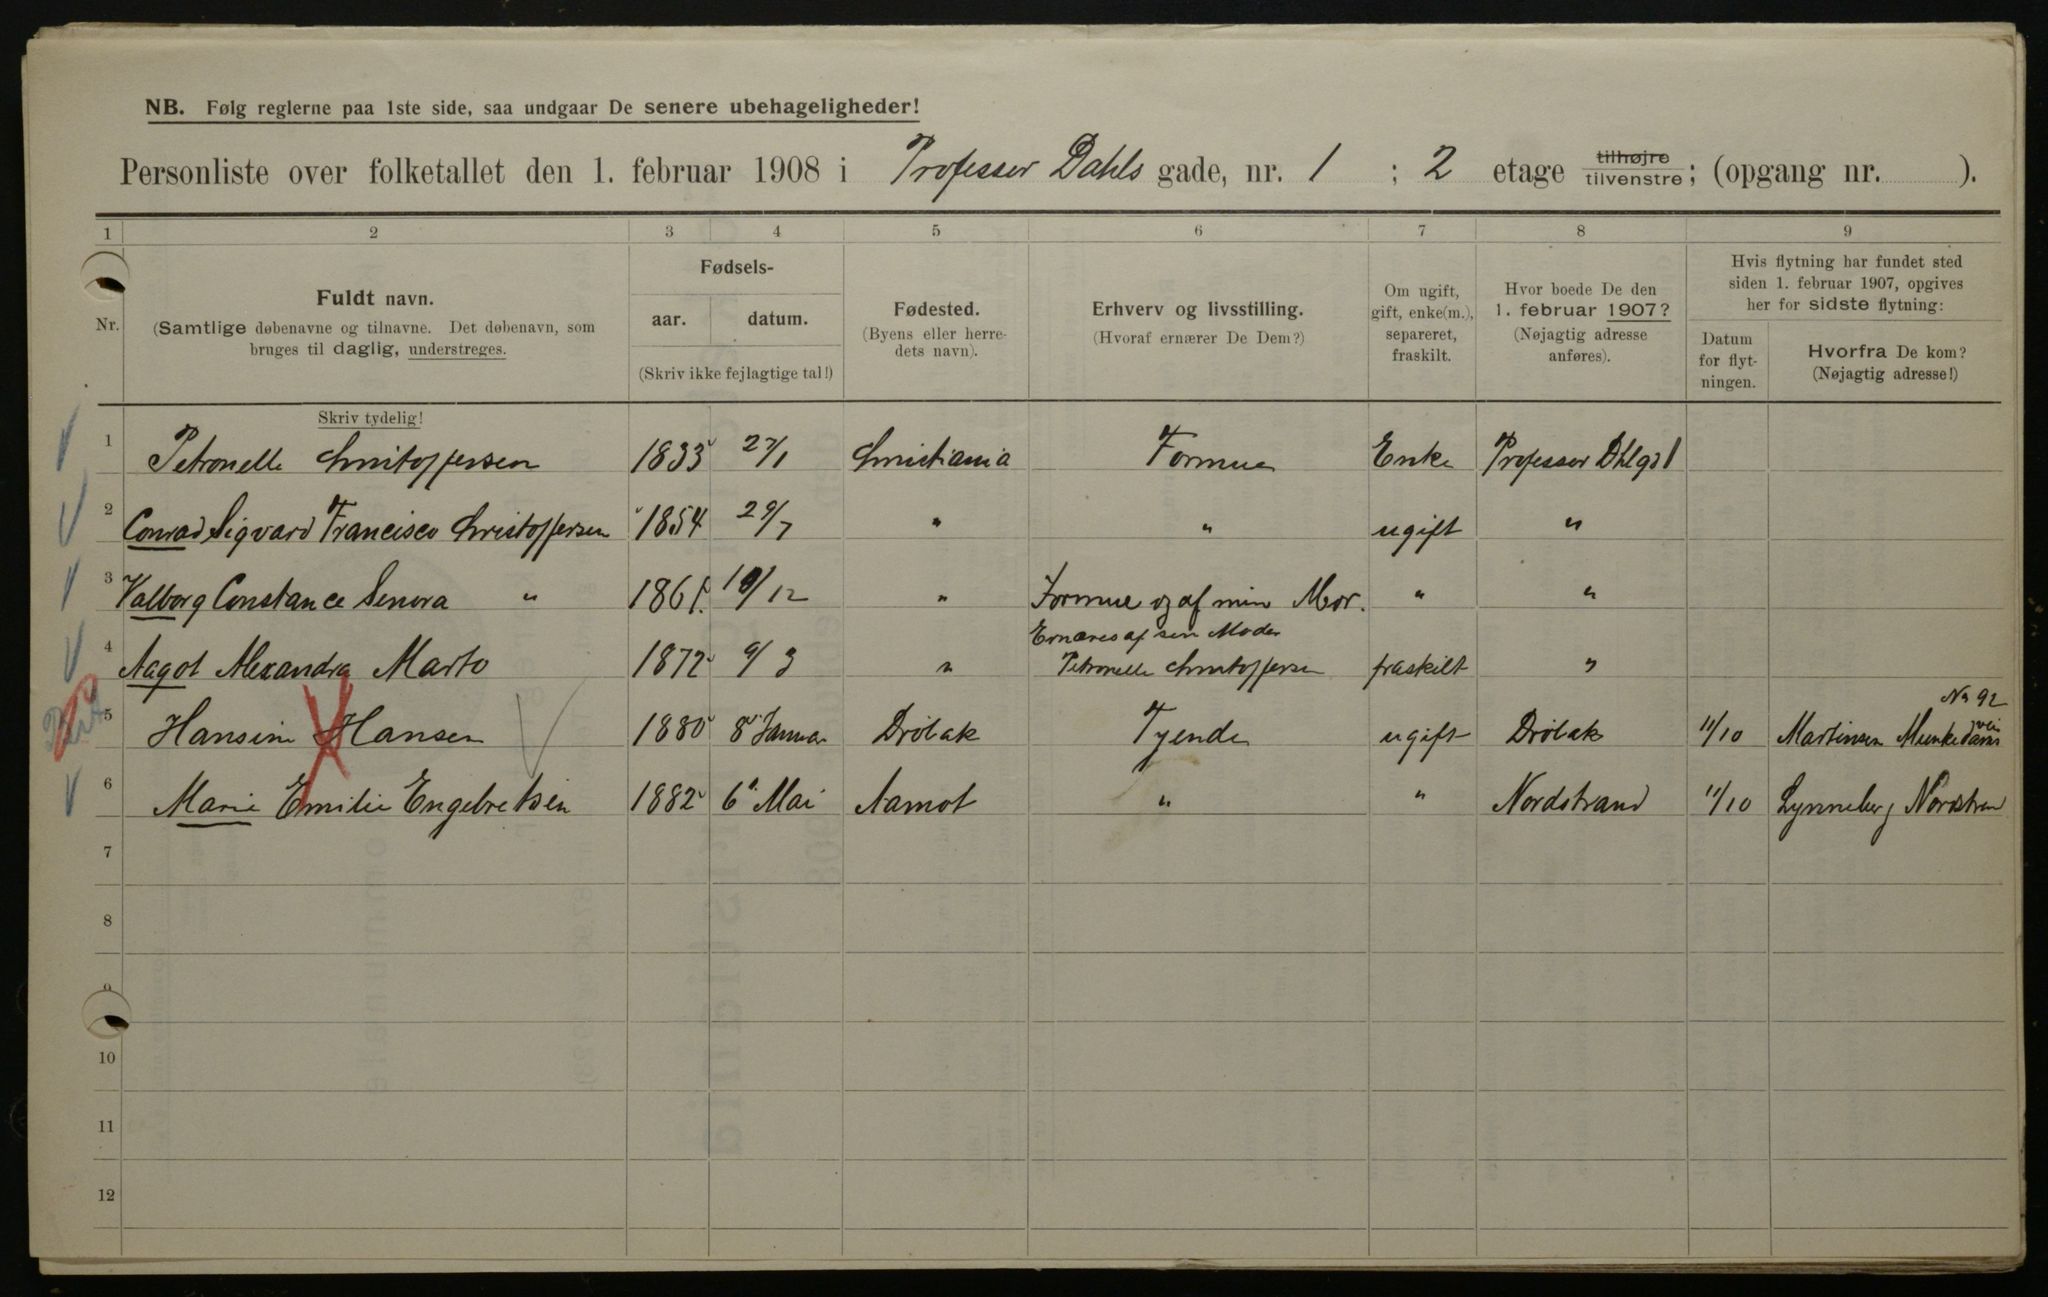 NB. Følg reglerne paa 1ste side, saa undgaar De senere ubehageligheder!
Personliste over folketallet den 1. februar 1908 i Professor Dahls gade, nr. 1 ; 2 etage tilhøjre tilvenstre; (opgang nr. ).
1 2 3 4 5 6 7 8 9
Nr.
Fuldt navn.
(Samtlige døbenavne og tilnavne. Det døbenavn, som
bruges til daglig, understreges.
Skriv tydelig!
Fødsels-
aar. datum.
(Skriv ikke fejlagtige tal!)
Fødested.
(Byens eller herre-
dets navn).
Erhverv og livsstilling.
(Hvoraf ernærer De Dem?)
Om ugift,
gift, enke(m.),
separeret,
fraskilt.
Hvor boede De den
1. februar 1907?
(Nøjagtig adresse
anføres).
Hvis flytning har fundet sted
siden 1. februar 1907, opgives
her for sidste flytning:
Datum
for flyt-
ningen.
Hvorfra De kom?
(Nøjagtig adresse!)
1 Petronelle Christoffersen 1833 27/1 Christiania Formue Enke Professor Dhlgd 1
2 Conrad Sigvard Francisco Christoffersen 1854 29/7 " " ugift "
3 Valborg Constance Senora " 1861 10/12 " Formue og af min Mor. " "
Ernæres af sin Moder
4 Aagot Alexandra Marto 1872 9/3 " Petronelle Christoffersen fraskilt "
No 92
5 Hansine Hansen 1880 8 Januar Drøbak Tyende ugift Drøbak 11/10 Martinsen Munkedams vei
6 Marie Emilie Engebretsen 1882 6 Mai Aamot " " Nordstrand 11/10 Lynneberg Nordstran
7
8
9
10
11
12